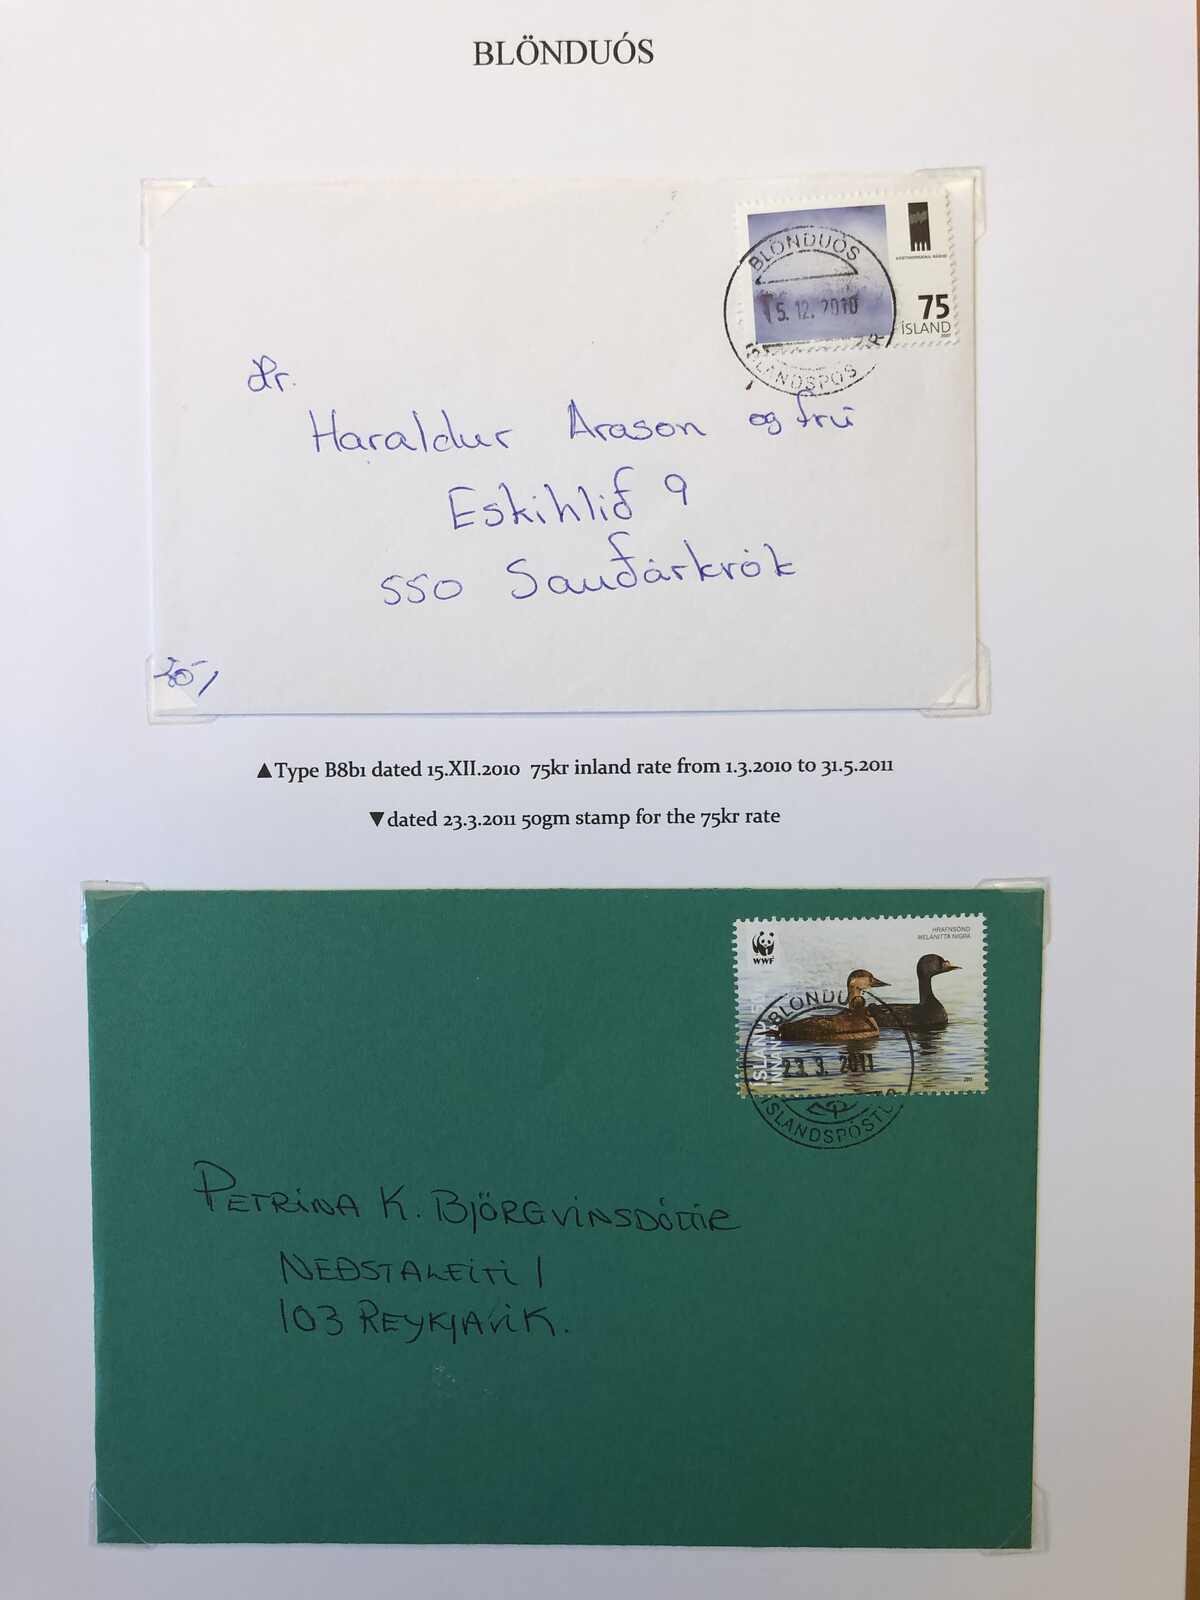 BLÖNDUÓS
BLÖNDUÓS
15.12.2010
ÍSLANDSPÓS
75
ÍSLAND
2007
Hr.
Haraldur Arason og frú
Eskihlíð 9
550 Sauðárkrók
▲Type B8b1 dated 15.XII.2010 75kr inland rate from 1.3.2010 to 31.5.2011
▼dated 23.3.2011 50gm stamp for the 75kr rate
HRAFNSÖND
MELANITTA NIGRA
WWF
ÍSLAND
BLÖNDUÓS
23.3.2011
ÍSLANDSPÓSTUR
2011
PETRÍNA K. BJÖRGVINSDÓTTIR
NEÐSTALEITI 1
103 REYKJAVÍK.